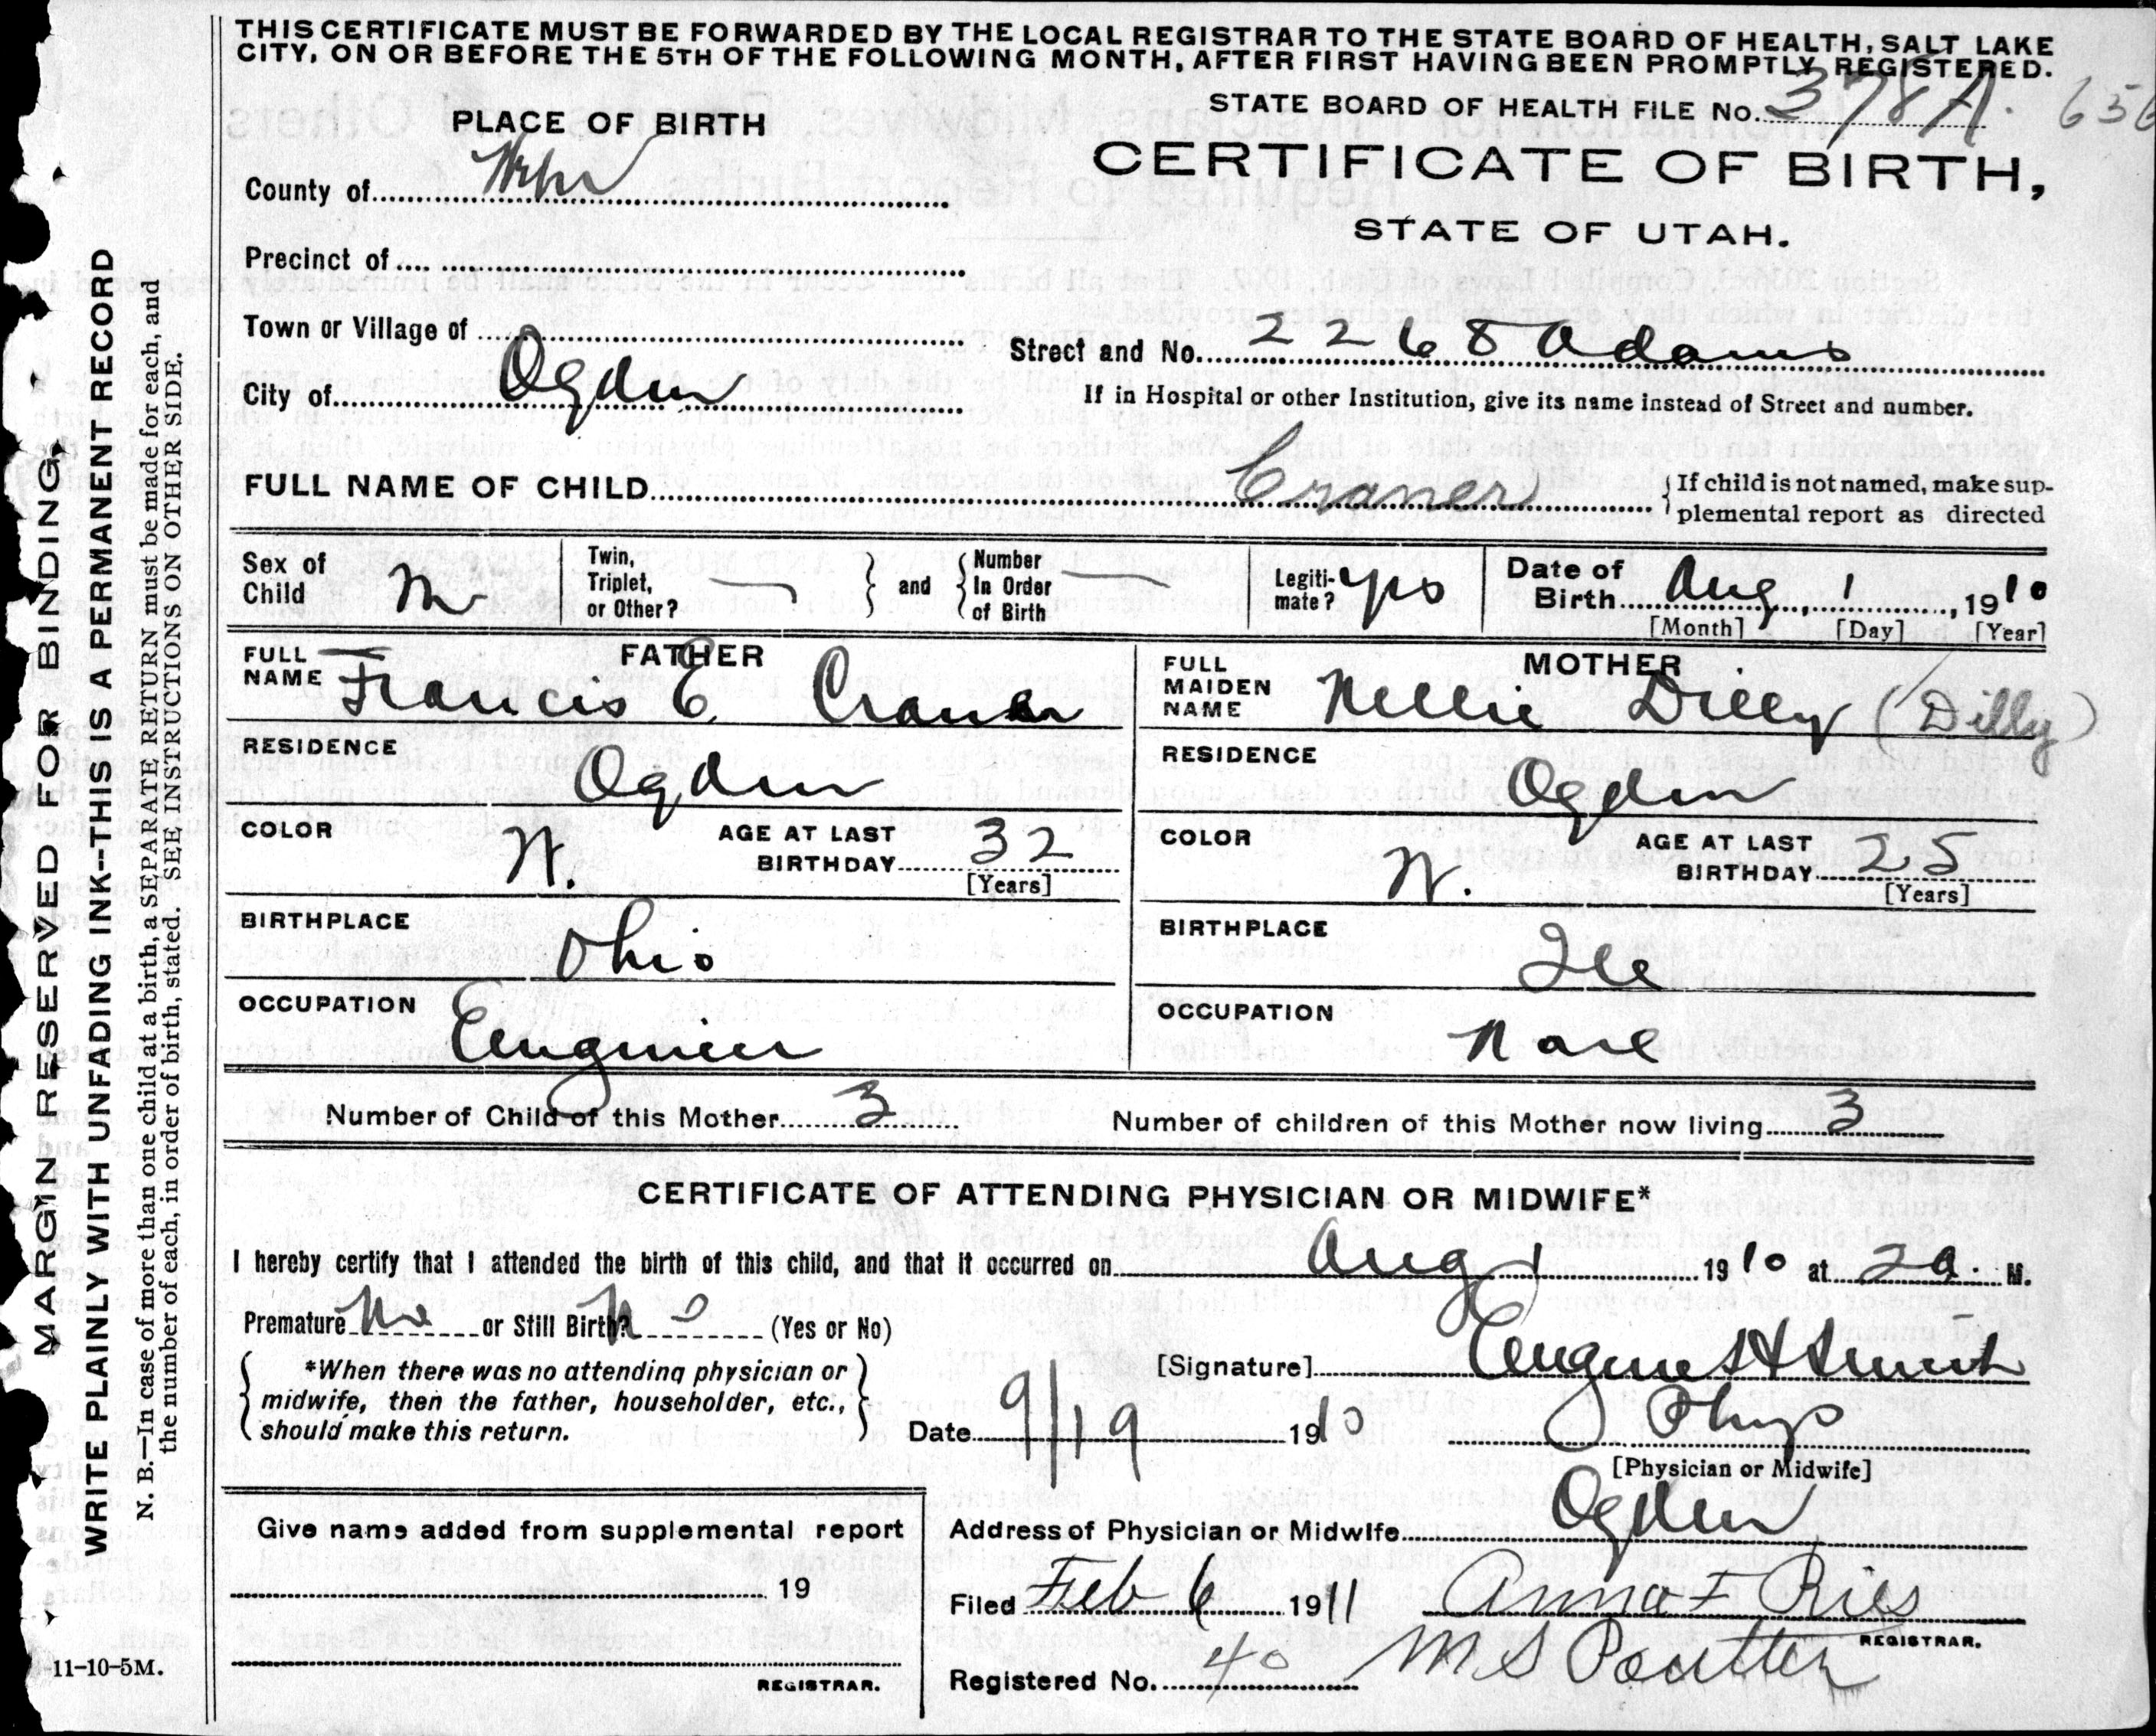 THIS CERTIFICATE MUST BE FORWARDED BY THE LOCAL REGISTRAR TO THE STATE BOARD OF HEALTH, SALT LAKE
CITY, ON OR BEFORE THE 5TH OF THE FOLLOWING MONTH, AFTER FIRST HAVING BEEN PROMPTLY REGISTERED.
STATE BOARD OF HEALTH FILE No. 378 A. 656
PLACE OF BIRTH
CERTIFICATE OF BIRTH,
STATE OF UTAH.
County of
Precinct of
Town or Village of
Street and No. 2268 Adams
City of Ogden
If in Hospital or other Institution, give its name instead of Street and number.
FULL NAME OF CHILD Craner
If child is not named, make sup-
plemental report as directed
Sex of Child M
Twin, Triplet, or Other? — and Number In Order of Birth —
Legiti-mate? yes
Date of Birth Aug, 1, 1910
[Month] [Day] [Year]
FATHER
FULL NAME Francis E Craner
RESIDENCE
Ogden
COLOR W. AGE AT LAST BIRTHDAY 32
[Years]
BIRTHPLACE
Ohio
OCCUPATION
Engineer
MOTHER
FULL MAIDEN NAME Nellie Dilly (Dilly)
RESIDENCE
Ogden
COLOR W. AGE AT LAST BIRTHDAY 25
[Years]
BIRTHPLACE
Ill
OCCUPATION
None
Number of Child of this Mother 3
Number of children of this Mother now living 3
CERTIFICATE OF ATTENDING PHYSICIAN OR MIDWIFE*
I hereby certify that I attended the birth of this child, and that it occurred on Aug 1 1910 at 2a. M.
Premature No or Still Birth? No (Yes or No)
*When there was no attending physician or
midwife, then the father, householder, etc.,
should make this return.
[Signature] Eugene H Smith
Date 9/19 1910 Phys
[Physician or Midwife]
Address of Physician or Midwife Ogden
Filed Feb 6 1911 Anna F Ries
REGISTRAR.
Registered No. 40 M S
Give name added from supplemental report
19
REGISTRAR.
11-10-5M.
MARGIN RESERVED FOR BINDING.
WRITE PLAINLY WITH UNFADING INK--THIS IS A PERMANENT RECORD
N. B.—In case of more than one child at a birth, a SEPARATE RETURN must be made for each, and
the number of each, in order of birth, stated. SEE INSTRUCTIONS ON OTHER SIDE.